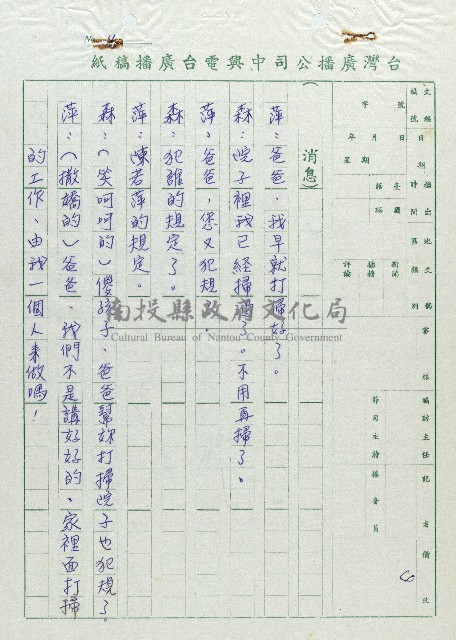 台灣廣播公司中興電台廣播稿紙
No.
文稿編號
字 號
日期
年 月 日
星期
播出時間
地區
文別
國語
臺語
新聞
播
評論
審核
編訪主任
記者
備註
節目主持
播音員
6
（消息）
萍：爸爸，我早就打掃好了。
森：院子裡我已経掃了。不用再掃了。
萍：爸爸，您又犯規。
森：犯誰的規定了。
萍：陳若萍的規定。
森：（笑呵呵的）傻孩子、爸爸幫妳打掃院子也犯規了。
萍：（撒嬌的）爸爸、我們不是講好好的、家裡面打掃
的工作、由我一個人来做嗎！
南投縣政府文化局
Cultural Bureau of Nantou County Government